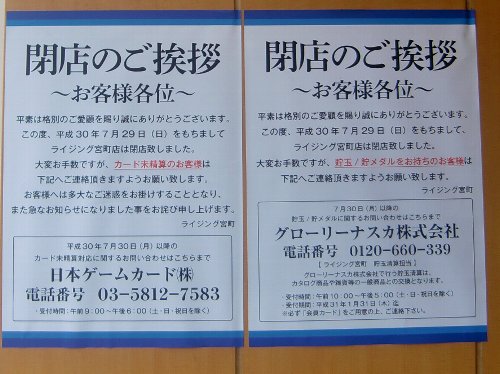 閉店のご挨拶
～お客様各位～
平素は格別のご愛顧を賜り誠にありがとうございます。
この度、平成30年7月29日（日）をもちまして
ライジング宮町店は閉店致しました。
大変お手数ですが、カード未精算のお客様は
下記へご連絡頂きますようお願い致します。
お客様へは多大なご迷惑をお掛けすることとなり、
また急なお知らせになりました事をお詫び申し上げます。
ライジング宮町
平成30年7月30日（月）以降の
カード未精算対応に関するお問い合わせはこちらまで
日本ゲームカード㈱
電話番号 03-5812-7583
・受付時間：午前9：00～午後6：00（土・日・祝日を除く）
閉店のご挨拶
～お客様各位～
平素は格別のご愛顧を賜り誠にありがとうございます。
この度、平成30年7月29日（日）をもちまして
ライジング宮町店は閉店致しました。
大変お手数ですが、貯玉/貯メダルをお持ちのお客様は
下記へご連絡頂きますようお願い致します。
ライジング宮町
7月30日（月）以降の
貯玉/貯メダルに関するお問い合わせはこちらまで
グローリーナスカ株式会社
電話番号 0120-660-339
［ライジング宮町 貯玉清算担当］
グローリーナスカ株式会社で行う貯玉清算は、
カタログ商品や雑貨等の一般商品との交換となります。
・受付時間：午前10：00～午後5：00（土・日・祝日を除く）
・受付期間：平成31年1月31日（木）迄
※必ず「会員カード」をご用意の上、ご連絡下さい。